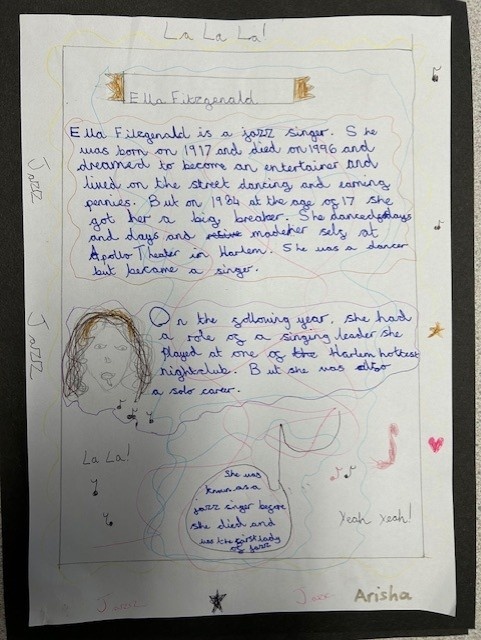 La La La!
Ella Fitzgenald
Ella Filzgenald is a jazz singer. She
was born on 1917 and died on 1996 and
dreamed to become an entertainer and
lived on the street dancing and earning
pennies. But on 1984 at the age of 17 she
got her a big breaker. She danced days
and days and madeher self at
Apollo Theater in Harlem. She was a dancer
but became a singer.
Jazz
Jazz
On the following year, she had
a role of a singing leader she
played at one of the Harlem hottest
nightclub. But she was also
a solo career.
La La!
She was
known as a
jazz singer before
she died and
was the first lady
of jazz
Yeah yeah!
Jazz
Jazz
Arisha